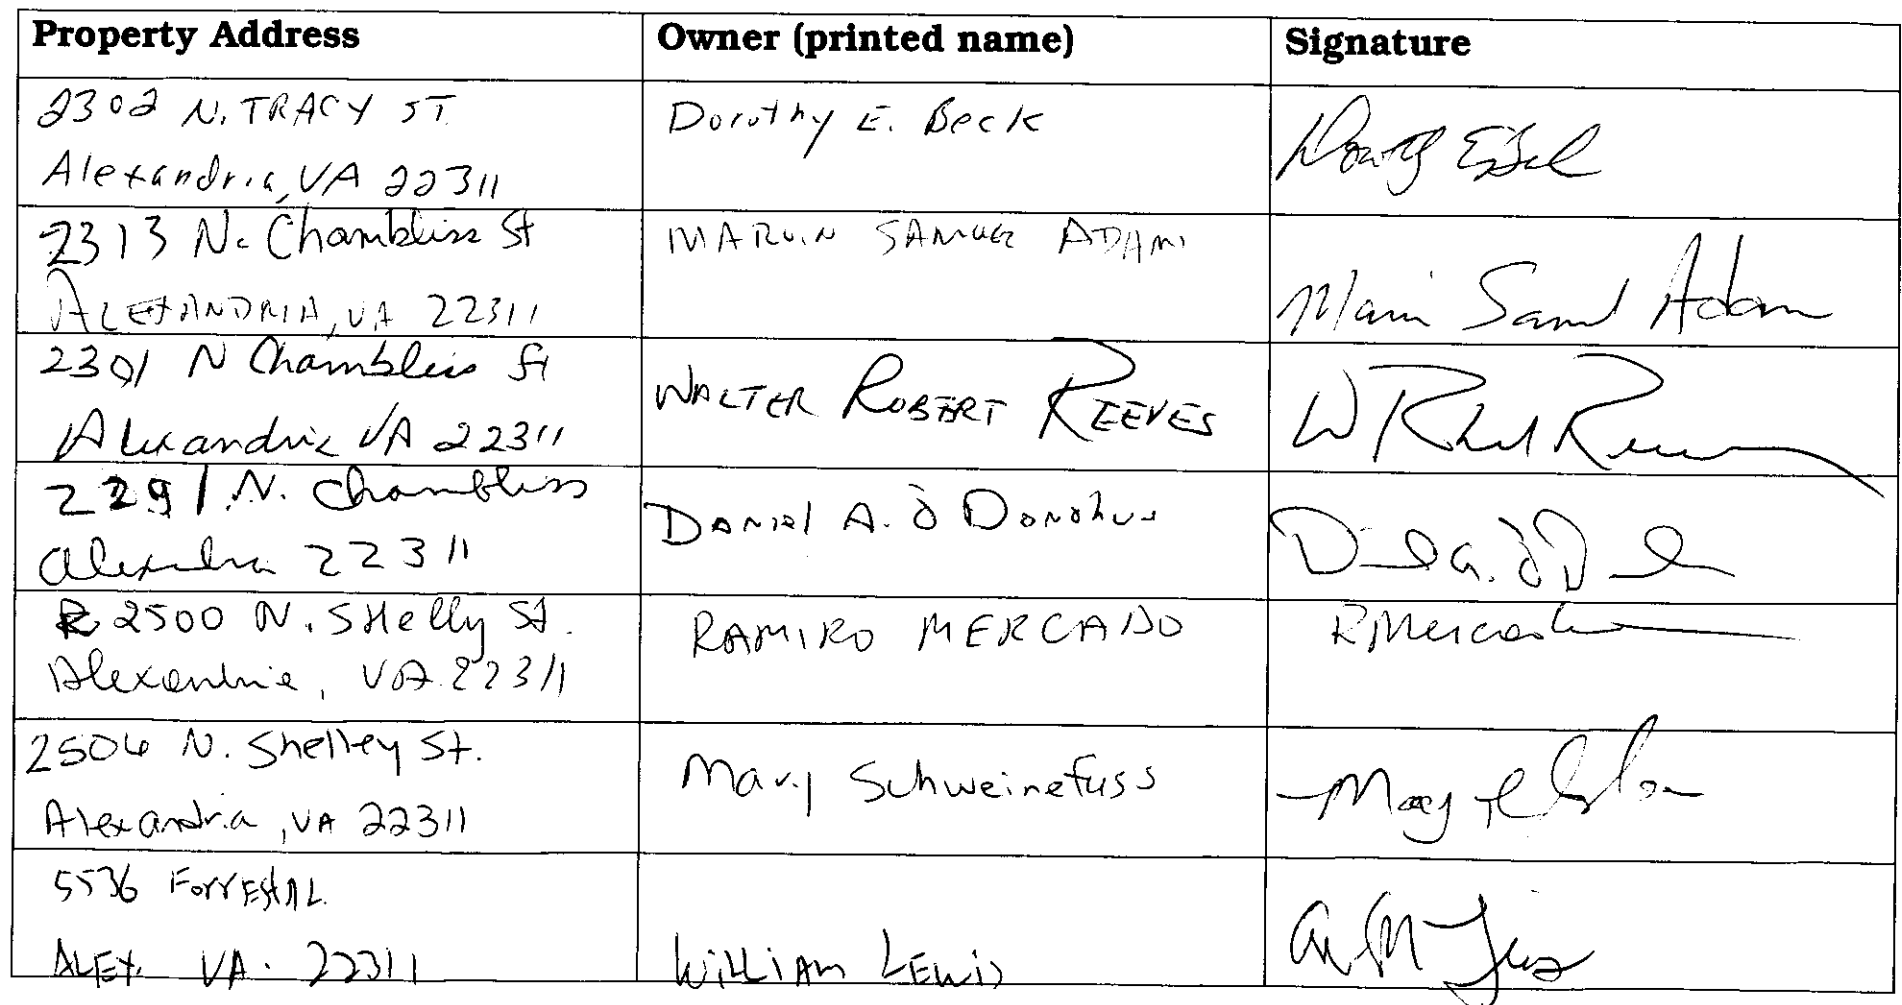 Property Address Owner (printed name) Signature
2302 N. TRACY ST.
Alexandria, VA 22311
Dorothy E. Beck
2313 N. Chambliss St
ALEXANDRIA, VA 22311
MARVIN SAMUEL ADAMS
2301 N Chambliss St
Alexandria VA 22311
WALTER ROBERT REEVES
W Robert Reeves
2291 N. Chambliss
Alexandria 22311
Daniel A. O'Donohue
2500 N. SHelly St.
Alexandria, VA 22311
RAMIRO MERCADO
R Mercado
2506 N. Shelley St.
Alexandria, VA 22311
Mary Schweinefuss
5536 ForrESTAL
ALEX. VA. 22311
WILLIAM LEWIS